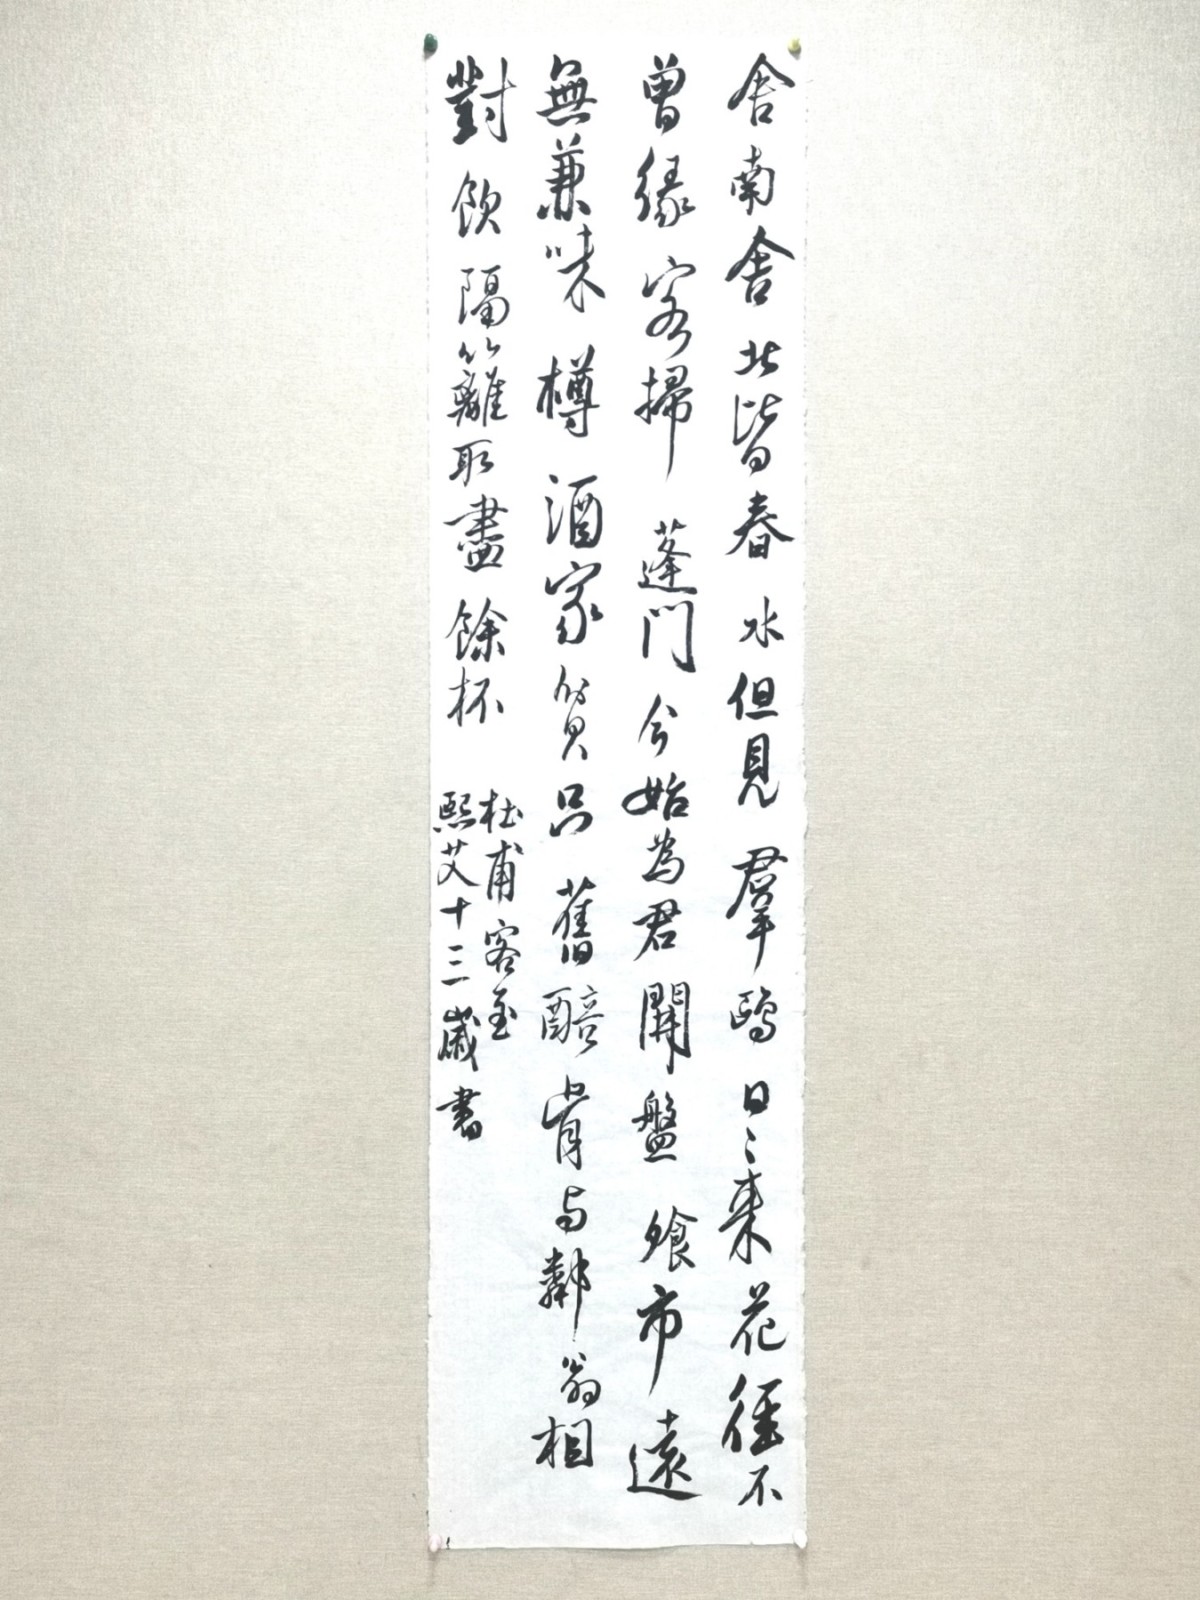 舍南舍北皆春水但見羣鷗日〻来花徑不
曾緣客掃蓬門今始為君開盤飧市遠
無兼味樽酒家貧只舊醅肯与鄰翁相
對飲隔籬取盡餘杯
杜甫客至
熙艾十三歲書